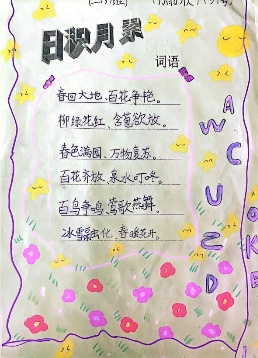 日积月累
词语
春回大地、百花争艳。
柳绿花红、含苞欲放。
春色满园、万物复苏。
百花齐放、泉水叮咚。
百鸟争鸣、莺歌燕舞。
冰雪融化、春暖花开。
A
W
C
U
Z
D
O
K